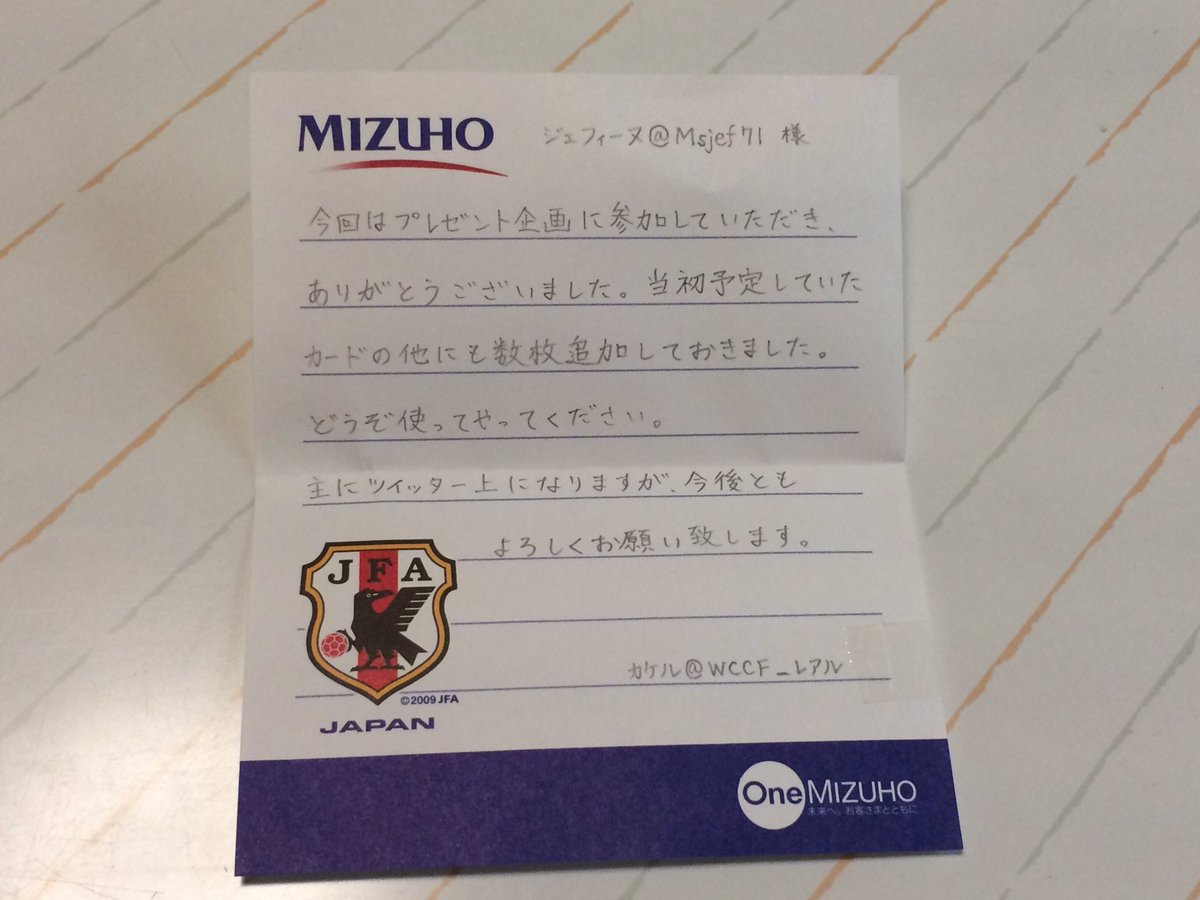 MIZUHO
ジェフィーヌ@Msjef71 様
今回はプレゼント企画に参加していただき、
ありがとうございました。当初予定していた
カードの他にも数枚追加しておきました。
どうぞ使ってやってください。
主にツイッター上になりますが、今後とも
よろしくお願い致します。
JFA
カケル@WCCF_レアル
©2009 JFA
JAPAN
One MIZUHO
未来へ。お客さまとともに